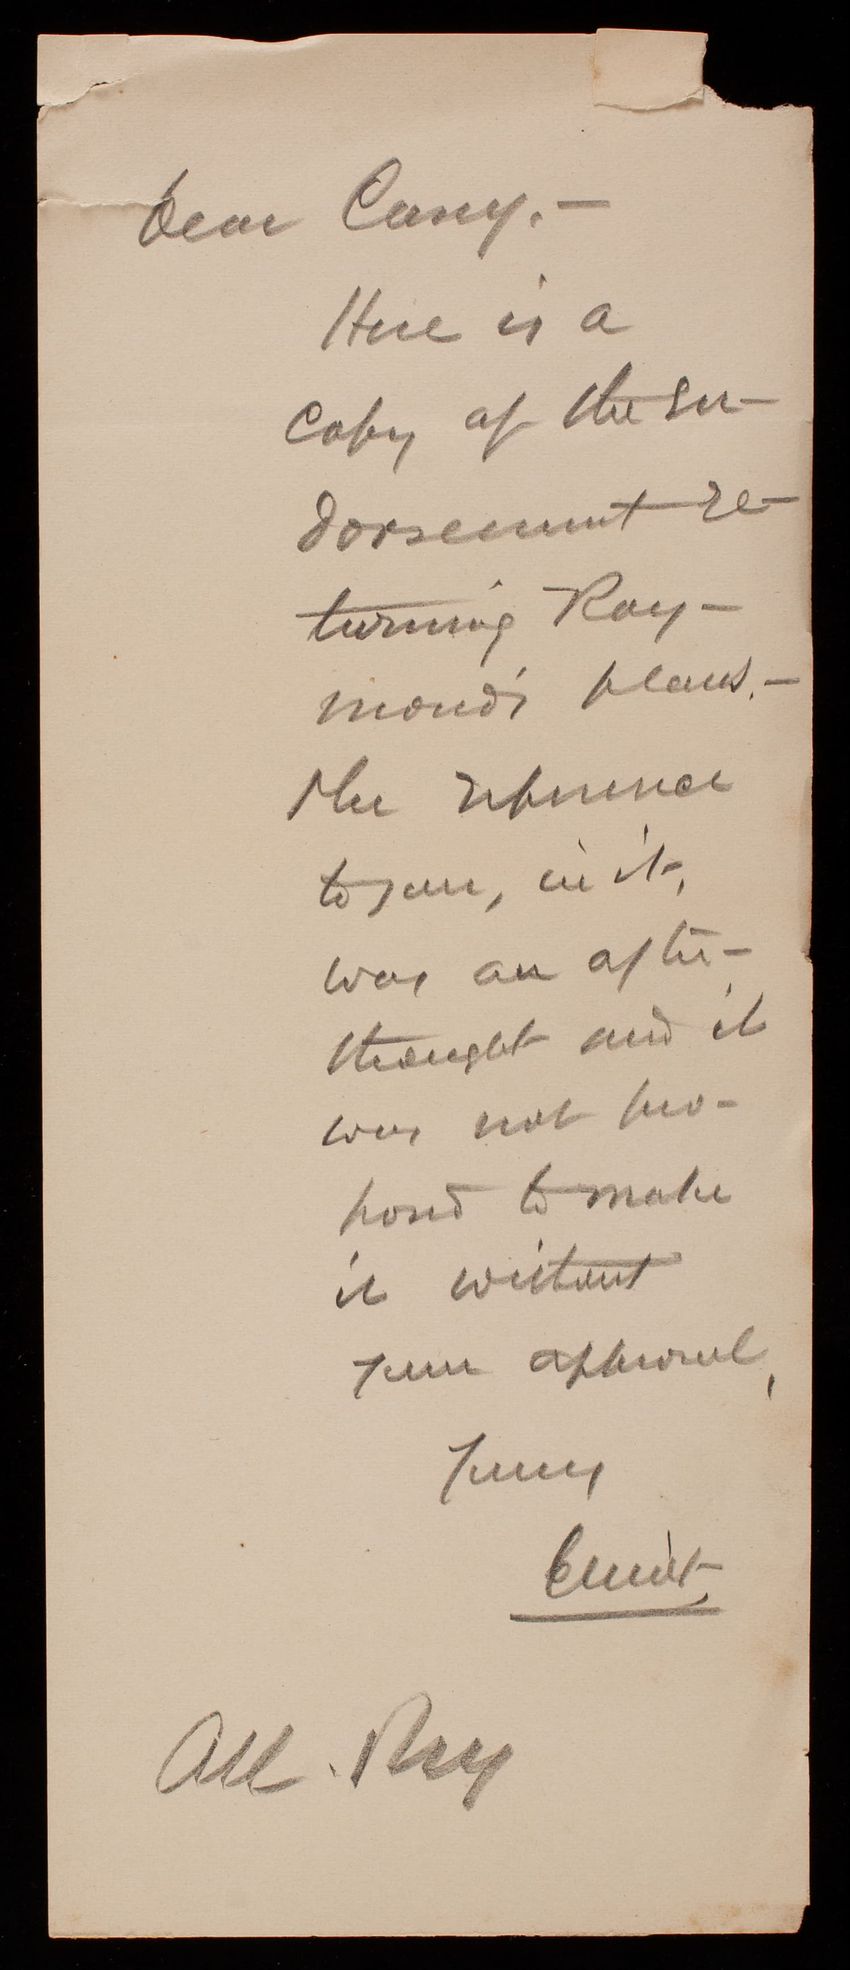 Dear Casey.—
Here is a
copy of the en-
dorsement re-
turning Ray-
mond's plans.—
The reference
to you, in it,
was an after-
thought and it
was not pro-
posed to make
it without
your approval,
Yours